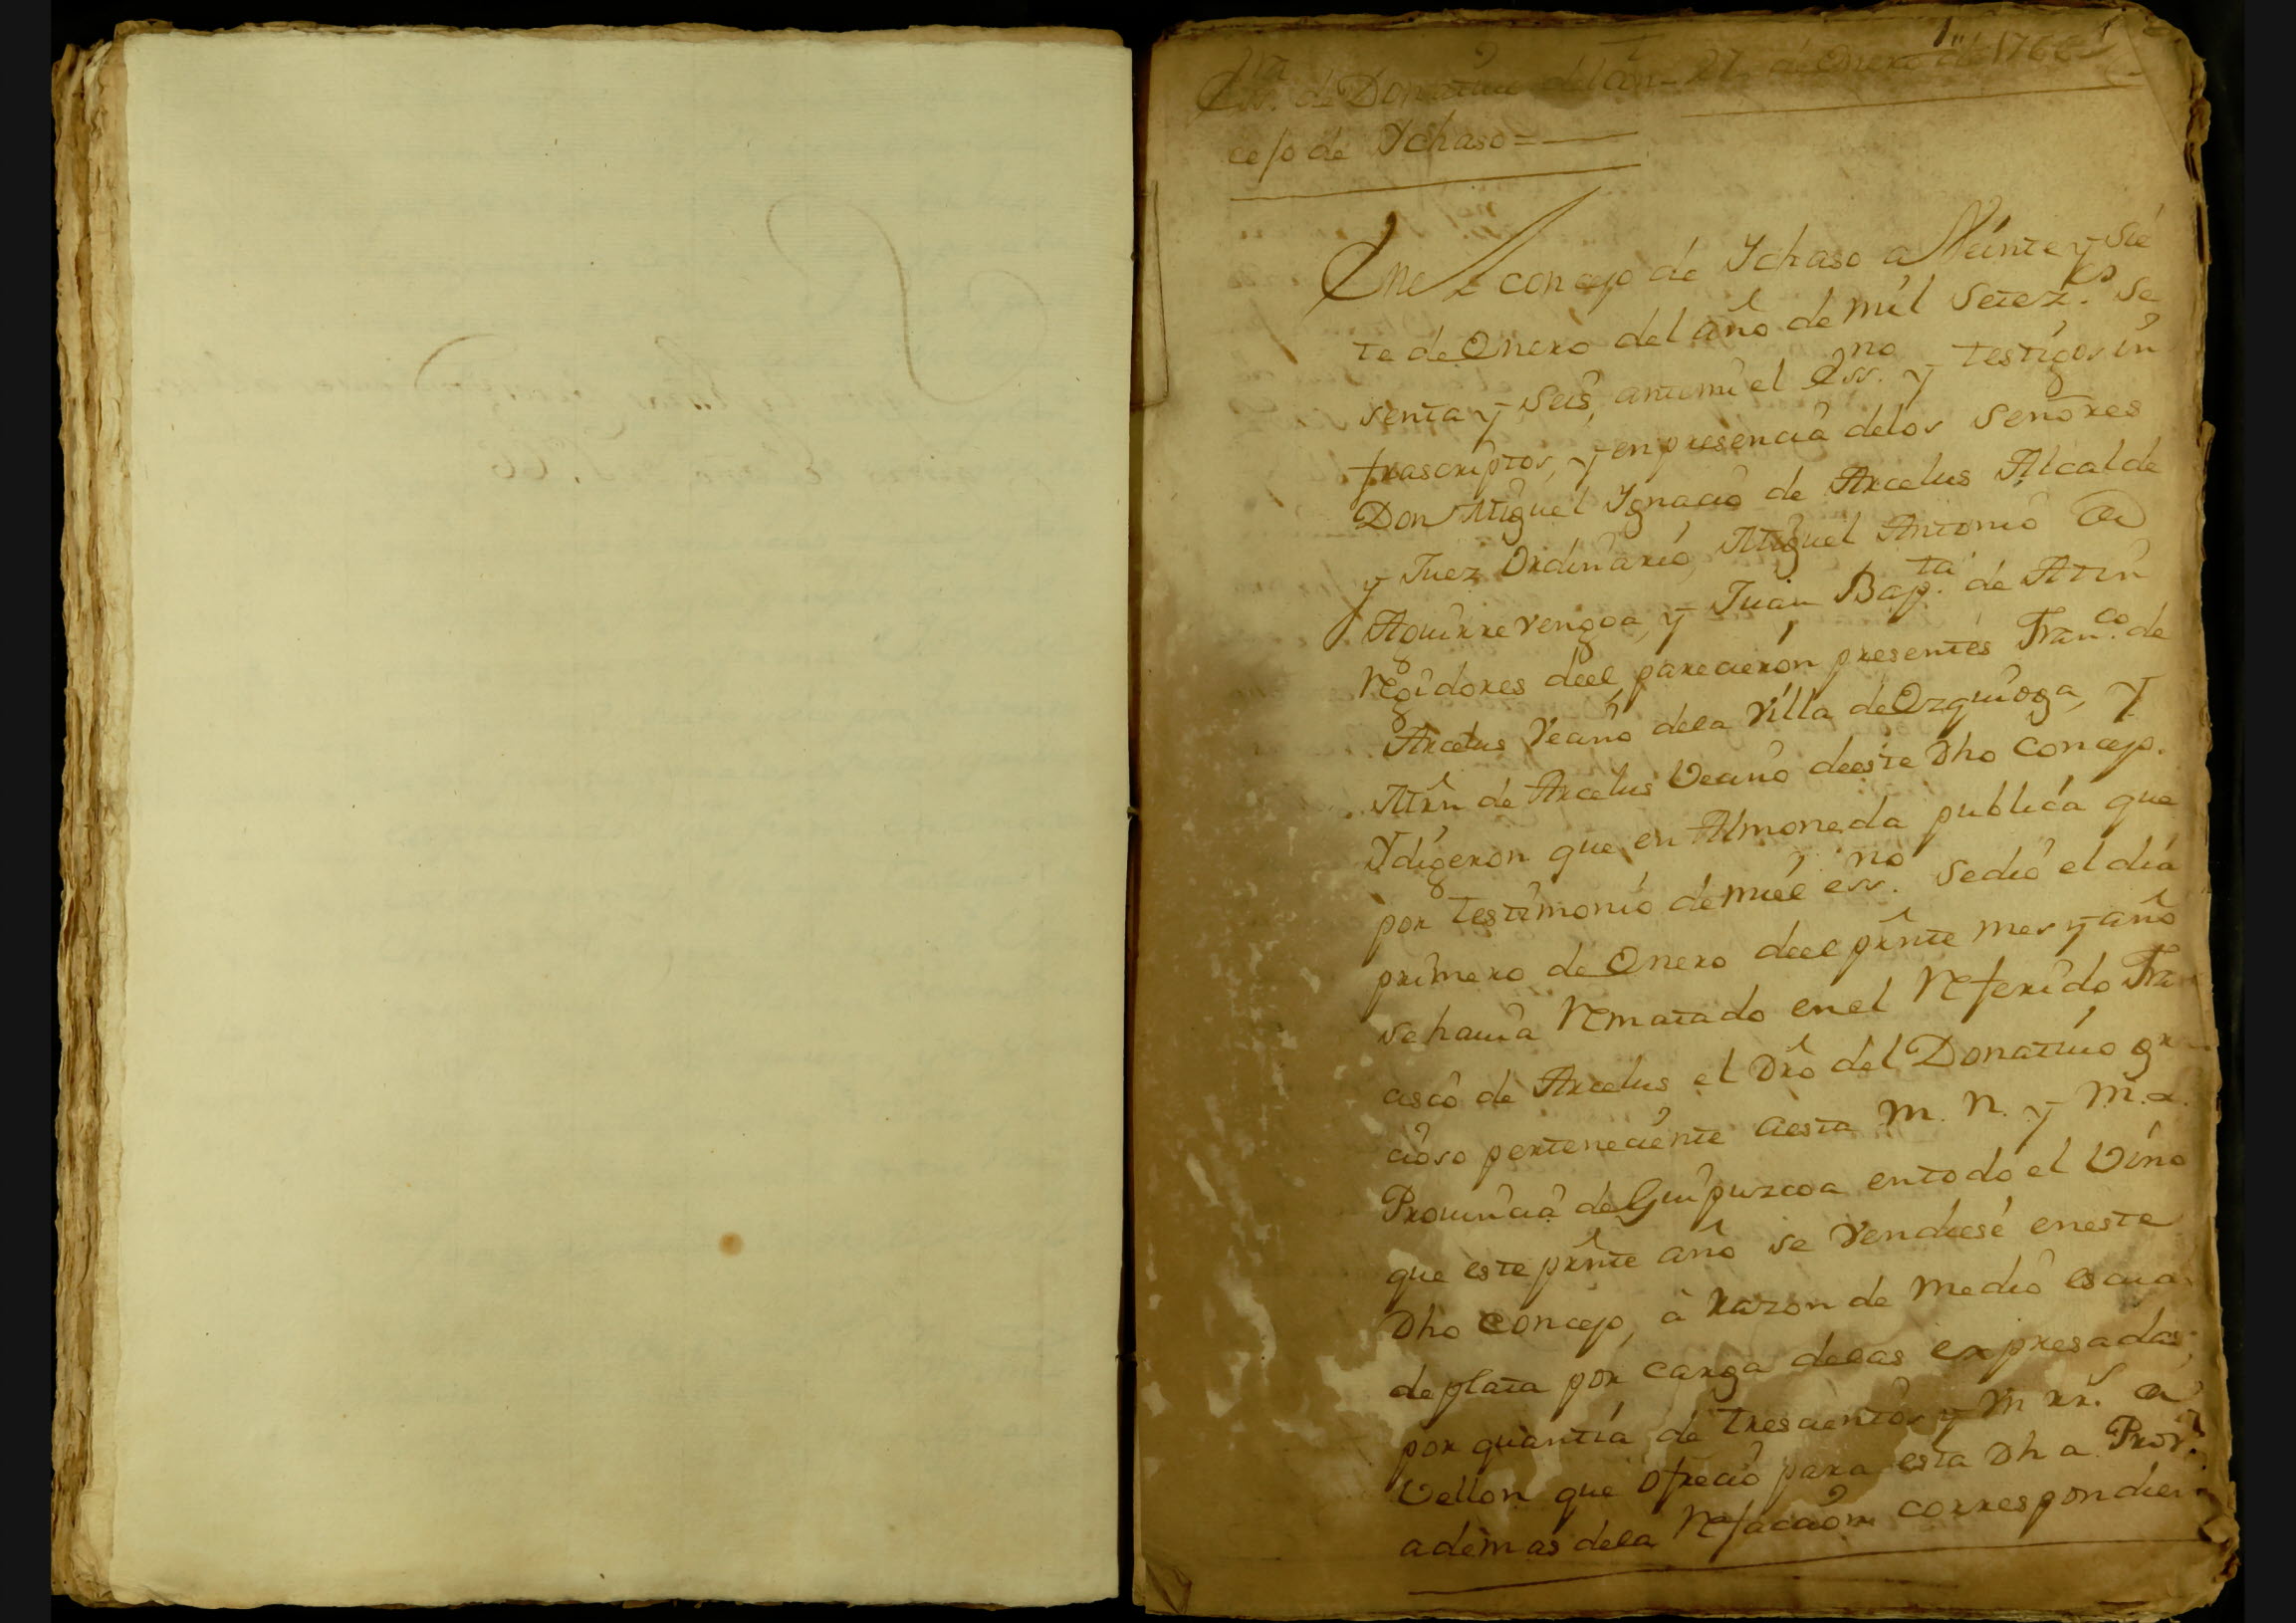 Ess.ra de Donativo del con- 27 de Enero de 1766
cejo de Ychaso =
Enel concejo de Ychaso a Veinte y Sie
te de Enero del año de mil Setez.os Se
senta y Seis, antemi el Ess.no y testigos in
frascriptos, y en presencia delos Señores
Don Miguel Ygnacio de Arcelus Alcalde
y Juez Ordinario, Miguel Antonio de
Aguirrevengoa, y Juan Bap.ta de Atin
Regidores deel parecieron presentes Fran.co de
Arcelus Vecino dela Villa de Ezquioga, y
Mrn de Arcelus Vecino deeste Dho Concejo.
Y digeron que en Almoneda publica que
por testimonio de miel ess.no sedio el dia
primero de Enero deel prnte mes y año
se hauia Rematado enel Referido Fran
cisco de Arcelus el Dro del Donativo gra
cioso perteneciente aesta M. N. y M. L.
Prouincia de Guipuzcoa entodo el Vino
que este prnte año se Vendiese eneste
Dho Concejo, à razon de medio escudo
de plata por carga delas expresadas,
por quantia de trescientos y Vn rr.s de
Vellon que ofrecio para esta Dha Prov.a
ademas dela Refaccion correspondien